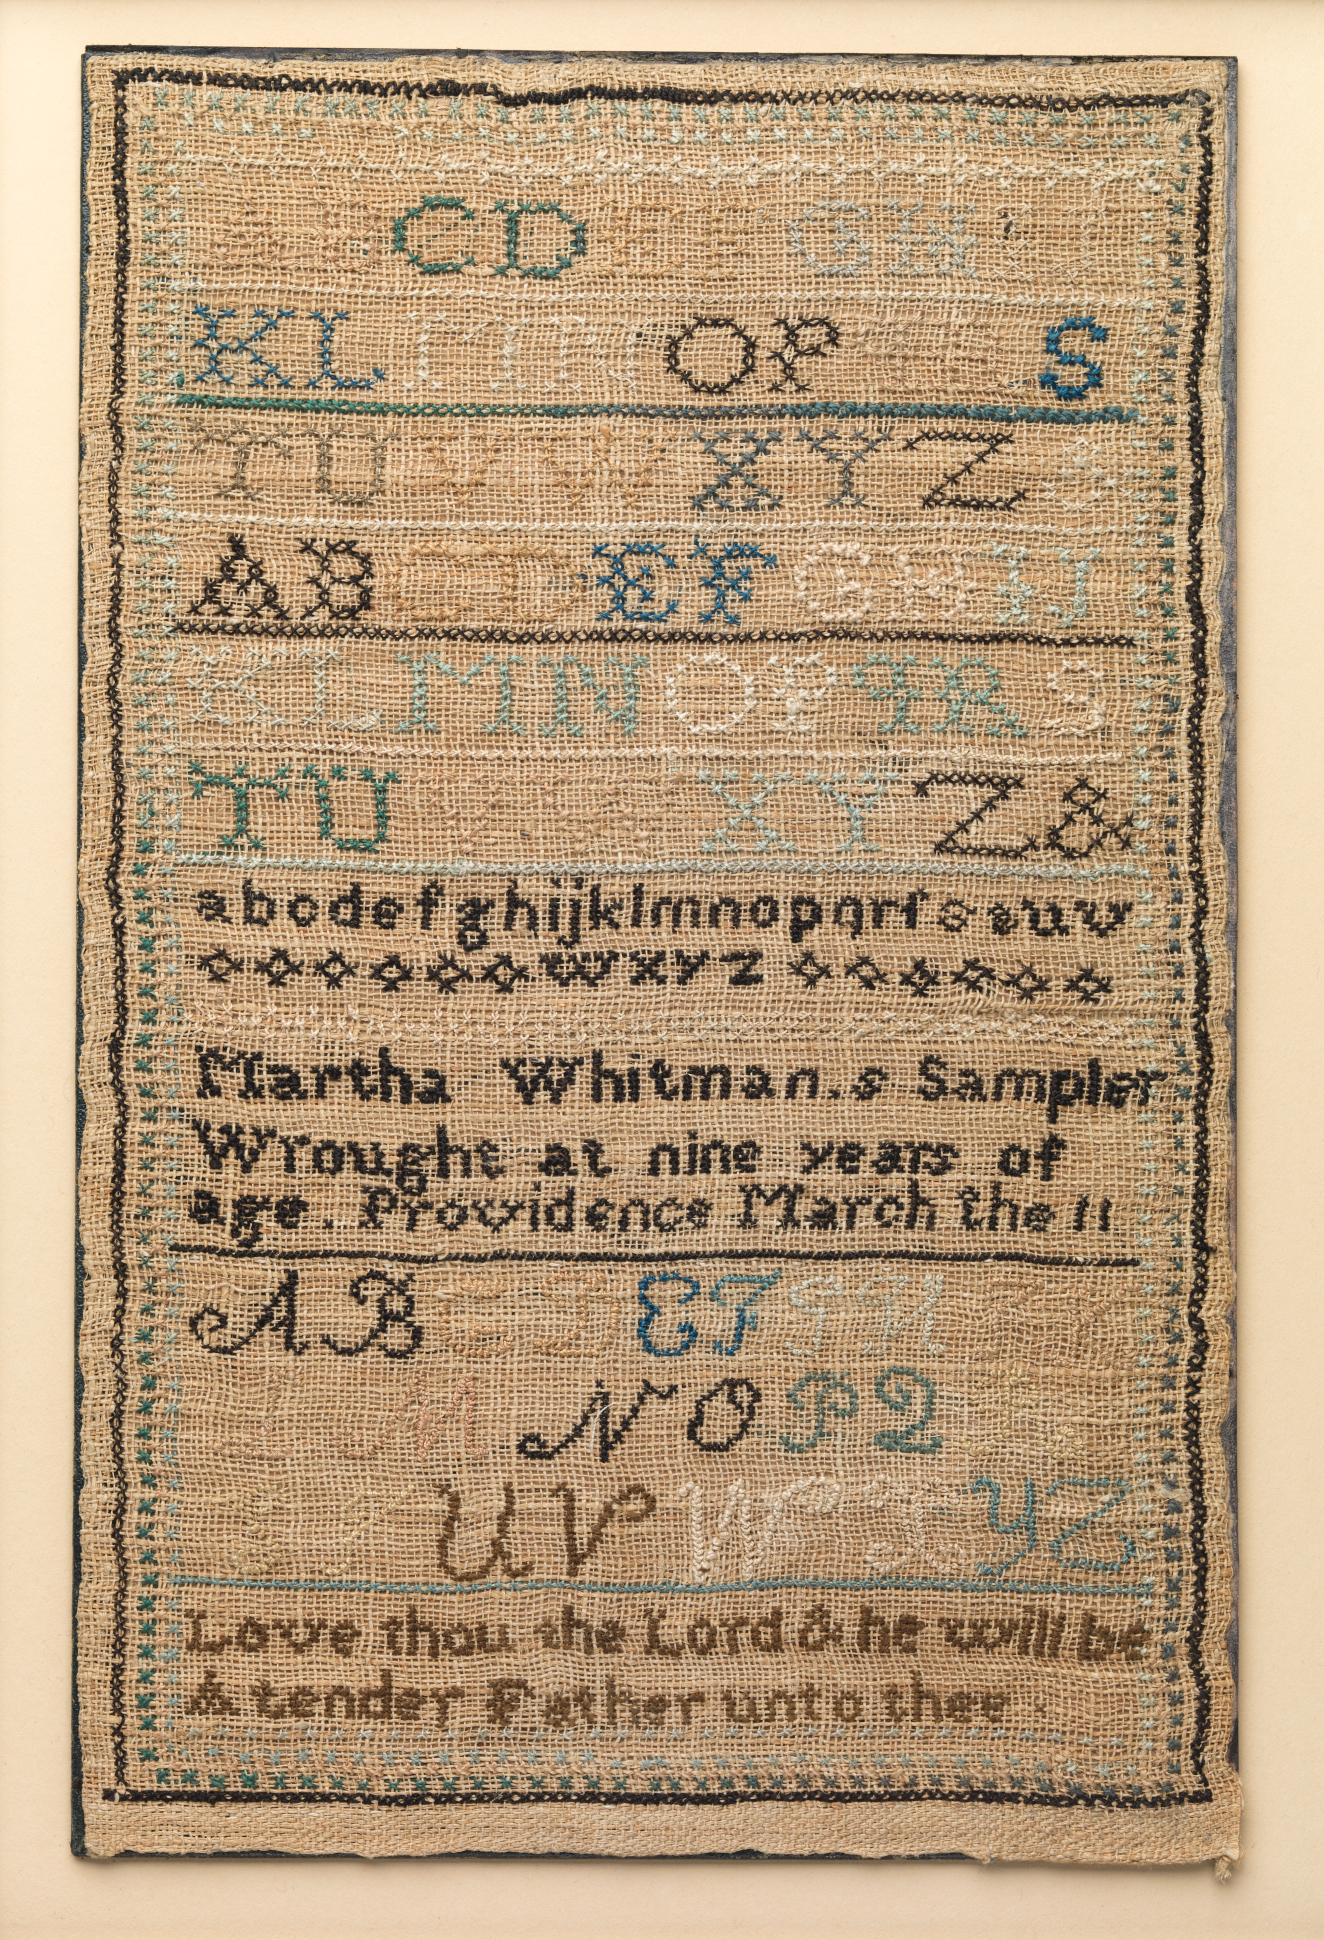 A B C D E F G H I J
K L M N O P Q R S
T U V W X Y Z &
A B C D E F G H I J
K L M N O P Q R S
T U V W X Y Z &
abcdefghijklmnopqrſstuv
wxyz
Martha Whitman.s Sampler
Wrought at nine years of
age. Providence March the 11
A B C D E F G H I K
L M N O P Q R S
T U V W X Y Z
Love thou the Lord & he will be
A tender Father unto thee